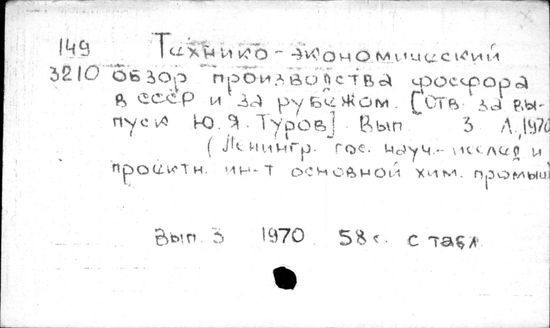 149 Технико-экономический
3210 обзор производства фосфора
в СССР и за рубежом. [Отв. за вы-
пуск Ю.Я. Туров]. Вып 3 Л., 1970
(Ленингр. гос. науч.-исслед и
проектн. ин-т основной хим. промыш
Вып. 3 1970 58 с. с табл